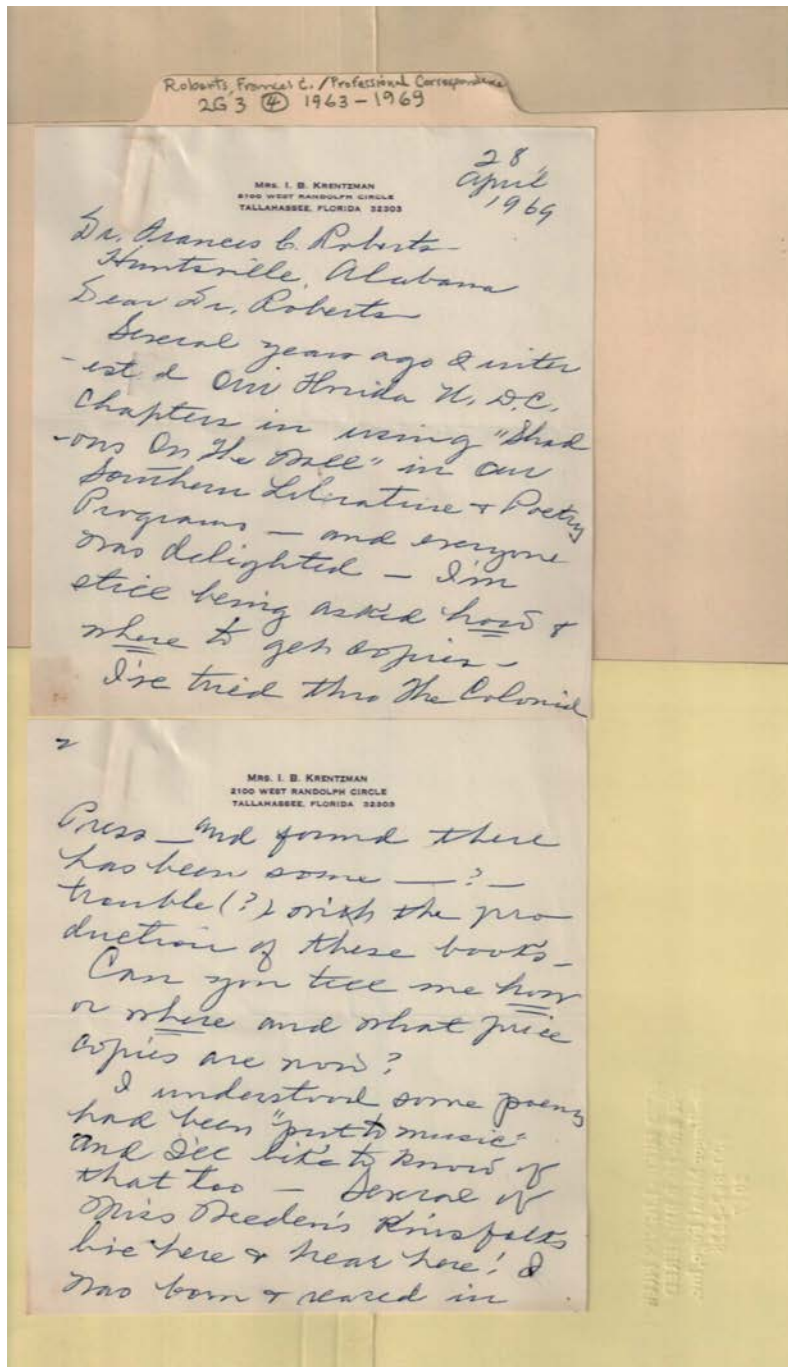 Roberts, Frances C. / Professional Correspondence
2G 3 ④ 1963-1969
28
April
1969
MRS. I. B. KRENTZMAN
2100 WEST RANDOLPH CIRCLE
TALLAHASSEE, FLORIDA 32303
Dr. Frances C. Roberts
Huntsville, Alabama
Dear Dr. Roberts
Several years ago I inter
-est d our Florida U. D. C.
Chapters in using "Shad
-ows On The Wall" in our
Southern Literature & Poetry
Programs — and everyone
was delighted — I'm
still being asked how &
where to get copies —
I've tried thro the Colonial
2
MRS. I. B. KRENTZMAN
2100 WEST RANDOLPH CIRCLE
TALLAHASSEE, FLORIDA 32303
Press — and found there
has been some — ? —
trouble (?) with the pro
duction of these books —
Can you tell me how
or where and what price
copies are now?
I understood some poems
had been "put to music"
and I'll like to know of
that too — Several of
Miss Weeden's Kinsfolks
live here & near here! I
was born & reared in